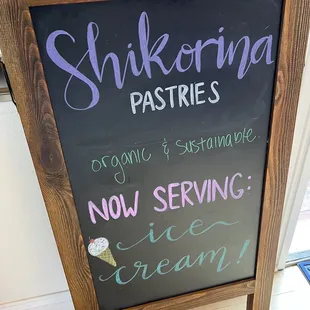 Shikorina
PASTRIES
organic & sustainable.
NOW SERVING:
ice
cream!